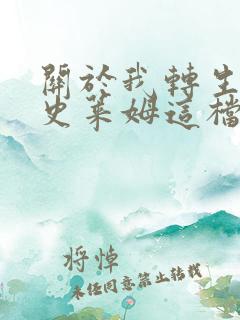 關於我轉生
史萊姆這檔
將悼
未經同意禁止轉載